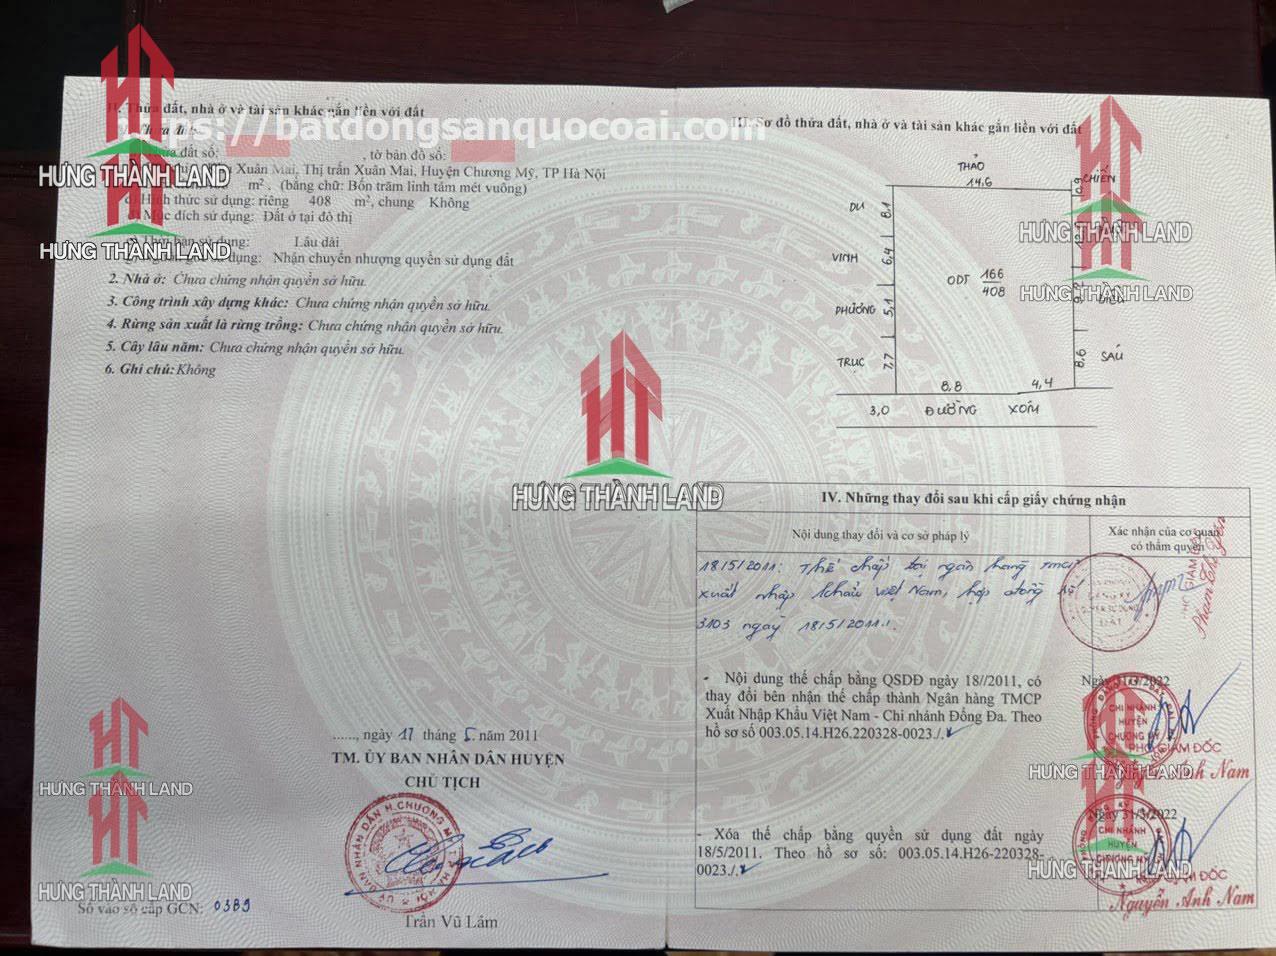 II. Thửa đất, nhà ở và tài sản khác gắn liền với đất
https://batdongsanquocoai.com
Thửa đất số: , tờ bản đồ số:
Xuân Mai, Thị trấn Xuân Mai, Huyện Chương Mỹ, TP Hà Nội
m², (bằng chữ: Bốn trăm linh tám mét vuông)
d) Hình thức sử dụng: riêng 408 m², chung Không
Mục đích sử dụng: Đất ở tại đô thị
Thời hạn sử dụng: Lâu dài
sử dụng: Nhận chuyển nhượng quyền sử dụng đất
2. Nhà ở: Chưa chứng nhận quyền sở hữu.
3. Công trình xây dựng khác: Chưa chứng nhận quyền sở hữu.
4. Rừng sản xuất là rừng trồng: Chưa chứng nhận quyền sở hữu.
5. Cây lâu năm: Chưa chứng nhận quyền sở hữu.
6. Ghi chú: Không
HƯNG THÀNH LAND
HƯNG THÀNH LAND
HƯNG THÀNH LAND
HƯNG THÀNH LAND
HƯNG THÀNH LAND
......, ngày 17 tháng 5 năm 2011
TM. ỦY BAN NHÂN DÂN HUYỆN
CHỦ TỊCH
Trần Vũ Lâm
Số vào sổ cấp GCN: 0389
III. Sơ đồ thửa đất, nhà ở và tài sản khác gắn liền với đất
THẢO
14,6
0,9 CHIẾN
DU 8,1
VINH 6,4
ODT 166
408
PHƯƠNG 5,1
TRUC 7,7
8,6 SÁU
8,8 4,4
3,0 ĐƯỜNG XÓM
HƯNG THÀNH LAND
HƯNG THÀNH LAND
IV. Những thay đổi sau khi cấp giấy chứng nhận
Nội dung thay đổi và cơ sở pháp lý
Xác nhận của cơ quan
có thẩm quyền
18/5/2011: Thế chấp tại ngân hàng TMCP
xuất nhập khẩu Việt Nam, hợp đồng số
3103 ngày 18/5/2011.
- Nội dung thế chấp bằng QSDĐ ngày 18//2011, có
thay đổi bên nhận thế chấp thành Ngân hàng TMCP
Xuất Nhập Khẩu Việt Nam - Chi nhánh Đống Đa. Theo
hồ sơ số 003.05.14.H26.220328-0023./.
Ngày 31/3/2022
CHI NHÁNH
HUYỆN
CHƯƠNG MỸ
PHÓ GIÁM ĐỐC
HƯNG THÀNH LAND
Anh Nam
- Xóa thế chấp bằng quyền sử dụng đất ngày
18/5/2011. Theo hồ sơ số: 003.05.14.H26-220328-
0023./.
Ngày 31/3/2022
CHI NHÁNH
HUYỆN
CHƯƠNG MỸ
HƯNG THÀNH LAND
GIÁM ĐỐC
Nguyễn Anh Nam